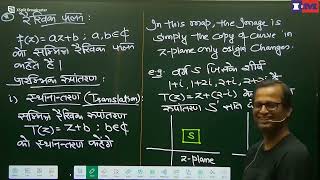 रैखिक फलन:
f(z)=az+b ; a,b∈¢
को सम्मिश्र रैखिक फलन
कहते हैं।
प्रारम्भिक रूपांतरण:
i) स्थानान्तरण (Translation):
सम्मिश्र रूपांतरण
T(z)=z+b ; b∈¢
को स्थानान्तरण कहेंगे
In this map, the Image is
simply the copy of curve in
z-plane only origin changes.
e.g. वर्ग S जिसके शीर्ष
1+i,
T(z)=z+(2-i) के
रूपांतरण S'
S
z-plane